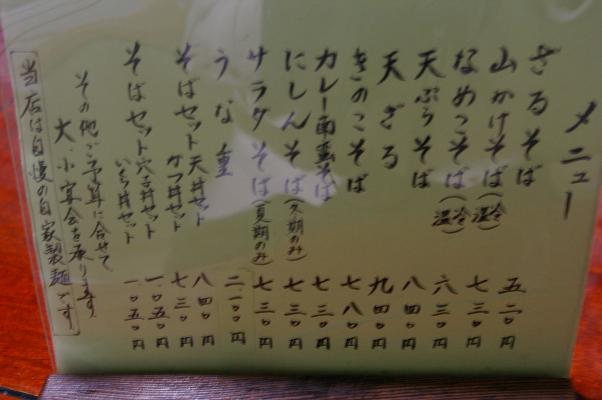 メニュー
ざるそば 五二〇円
山かけそば(冷温) 七三〇円
なめこそば(冷温) 六三〇円
天ぷらそば 八四〇円
天ざる 九四〇円
きのこそば 七八〇円
カレー南蛮そば 七三〇円
にしんそば(冬期のみ) 七三〇円
サラダそば(夏期のみ) 七三〇円
うな重 二一〇〇円
そばセット 天丼セット 八四〇円
かつ丼セット 七三〇円
そばセット 穴子丼セット 一〇五〇円
いくら丼セット 一〇五〇円
その他ご予算に合せて
大、小宴会を承ります
当店は自慢の自家製麺です